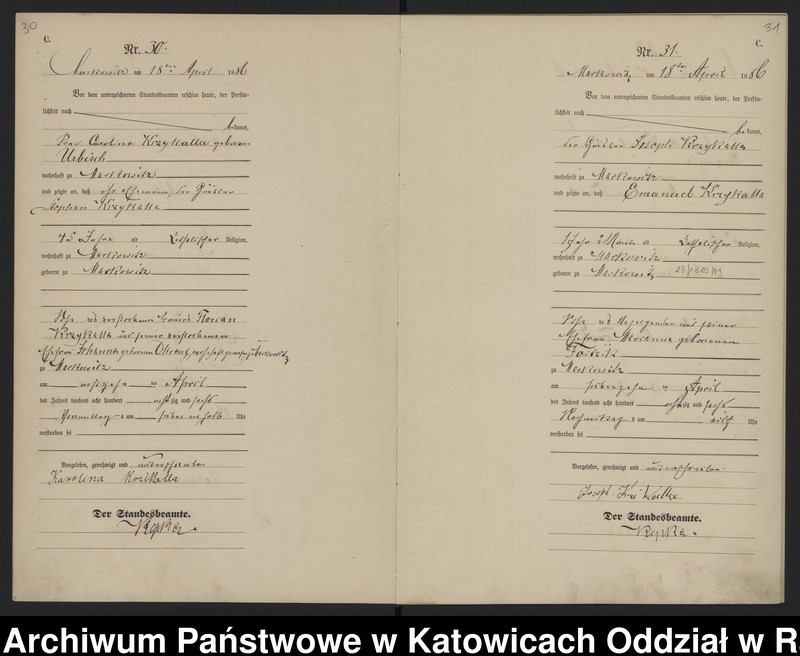 30
C.
Nr. 30.
Markowitz am 18ten April 1886
Vor dem unterzeichneten Standesbeamten erschien heute, der Persön-
lichkeit nach
bekannt,
Frau Carolina Krzykalla geborene
Urbisch
wohnhaft zu Markowitz
und zeigte an, daß ihr Ehemann, der Häusler
Stephan Krzykalla
45 Jahre alt katholischer Religion,
wohnhaft zu Markowitz
geboren zu Markowitz
Sohn des verstorbenen Florian
Krzykalla und seiner verstorbenen
Ehefrau Johanna geborenen
zu Markowitz
am achtzehn ten April
des Jahres tausend acht hundert achtzig und sechs
Vormittags um sieben einhalb Uhr
verstorben sei
Vorgelesen, genehmigt und unterschrieben
Karolina Kozikalla
Der Standesbeamte.
31
C.
Nr. 31.
Markowitz am 18ten April 1886
Vor dem unterzeichneten Standesbeamten erschien heute, der Persön-
lichkeit nach
bekannt,
der Häusler Joseph Krzykalla
wohnhaft zu Markowitz
und zeigte an, daß Emanuel Krzykalla
1 Jahr 2 Monate alt katholischer Religion,
wohnhaft zu Markowitz
geboren zu Markowitz
Sohn des Anzeigenden und seiner
Ehefrau Marianna geborenen
zu Markowitz
am siebenzehn ten April
des Jahres tausend acht hundert achtzig und sechs
Nachmittags um eilf Uhr
verstorben sei
Vorgelesen, genehmigt und unterschrieben
Joseph
Der Standesbeamte.
Archiwum Państwowe w Katowicach Oddział w R